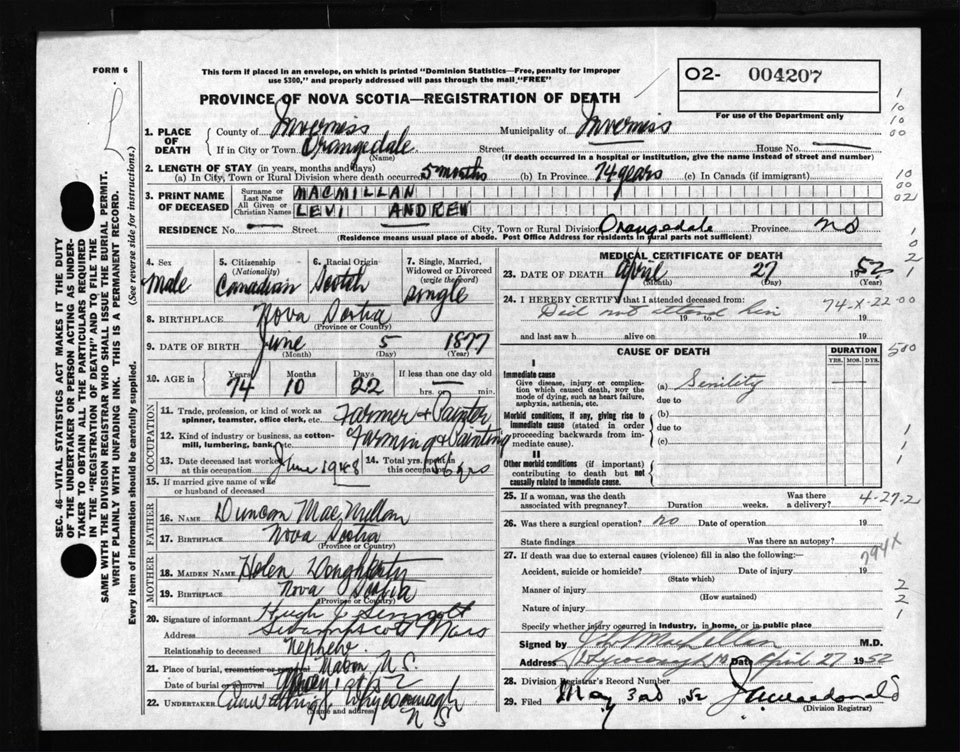 FORM 6
This form if placed in an envelope, on which is printed "Dominion Statistics—Free, penalty for improper
use $300," and properly addressed will pass through the mail "FREE"
O2- 004207
For use of the Department only
PROVINCE OF NOVA SCOTIA—REGISTRATION OF DEATH
1. PLACE OF DEATH
County of Inverness Municipality of Inverness
If in City or Town Orangedale Street House No.
(Name) (If death occurred in a hospital or institution, give the name instead of street and number)
2. LENGTH OF STAY (in years, months and days)
(a) In City, Town or Rural Division where death occurred 5 months (b) In Province 74 years (c) In Canada (if immigrant)
3. PRINT NAME OF DECEASED
Surname or Last Name MACMILLAN
All Given or Christian Names LEVI ANDREW
RESIDENCE No. Street City, Town or Rural Division Orangedale Province NS
(Residence means usual place of abode. Post Office Address for residents in rural parts not sufficient)
4. Sex Male
5. Citizenship (Nationality) Canadian
6. Racial Origin Scotch
7. Single, Married, Widowed or Divorced (write the word) Single
8. BIRTHPLACE Nova Scotia
(Province or Country)
9. DATE OF BIRTH June 5 1877
(Month) (Day) (Year)
10. AGE in Years 74 Months 10 Days 22 If less than one day old hrs. or min.
OCCUPATION
11. Trade, profession, or kind of work as spinner, teamster, office clerk, etc. Farmer & Painter
12. Kind of industry or business, as cotton-mill, lumbering, bank, etc. Farming & Painting
13. Date deceased last worked at this occupation June 1948
14. Total yrs. spent in this occupation 56 yrs
15. If married give name of wife or husband of deceased
FATHER
16. NAME Duncan MacMillan
17. BIRTHPLACE Nova Scotia
(Province or Country)
MOTHER
18. MAIDEN NAME Helen
19. BIRTHPLACE Nova Scotia
(Province or Country)
20. Signature of informant Hugh
Address Swampscott Mass
Relationship to deceased Nephew
21. Place of burial, cremation or removal Mabou N.S.
Date of burial or removal
22. UNDERTAKER Whycocomagh
N S
(Name and address)
MEDICAL CERTIFICATE OF DEATH
23. DATE OF DEATH April 27 1952
(Month) (Day) (Year)
24. I HEREBY CERTIFY that I attended deceased from:
Did not attend him
19 to 19
and last saw h alive on 19
74-X-22-00
CAUSE OF DEATH
DURATION
YRS. MOS. DYS.
I
Immediate cause
Give disease, injury or complication which caused death, not the mode of dying, such as heart failure, asphyxia, asthenia, etc.
(a) Senility
due to
Morbid conditions, if any, giving rise to immediate cause (stated in order proceeding backwards from immediate cause).
(b)
due to
(c)
II
Other morbid conditions (if important) contributing to death but not causally related to immediate cause.
25. If a woman, was the death associated with pregnancy? Duration weeks. Was there a delivery?
4-27-2
26. Was there a surgical operation? No Date of operation 19
State findings Was there an autopsy?
27. If death was due to external causes (violence) fill in also the following:—
794X
Accident, suicide or homicide? Date of injury 19
(State which)
Manner of injury
(How sustained)
Nature of injury
Specify whether injury occurred in Industry, in home, or in public place
Signed by M.D.
Address Date April 27 1952
28. Division Registrar's Record Number
29. Filed May 3rd 1952
(Division Registrar)
SEC. 46—VITAL STATISTICS ACT MAKES IT THE DUTY
OF THE UNDERTAKER OR PERSON ACTING AS UNDER-
TAKER TO OBTAIN ALL THE PARTICULARS REQUIRED
IN THE "REGISTRATION OF DEATH" AND TO FILE THE
SAME WITH THE DIVISION REGISTRAR WHO SHALL ISSUE THE BURIAL PERMIT.
WRITE PLAINLY WITH UNFADING INK. THIS IS A PERMANENT RECORD.
Every item of information should be carefully supplied. (See reverse side for instructions.)